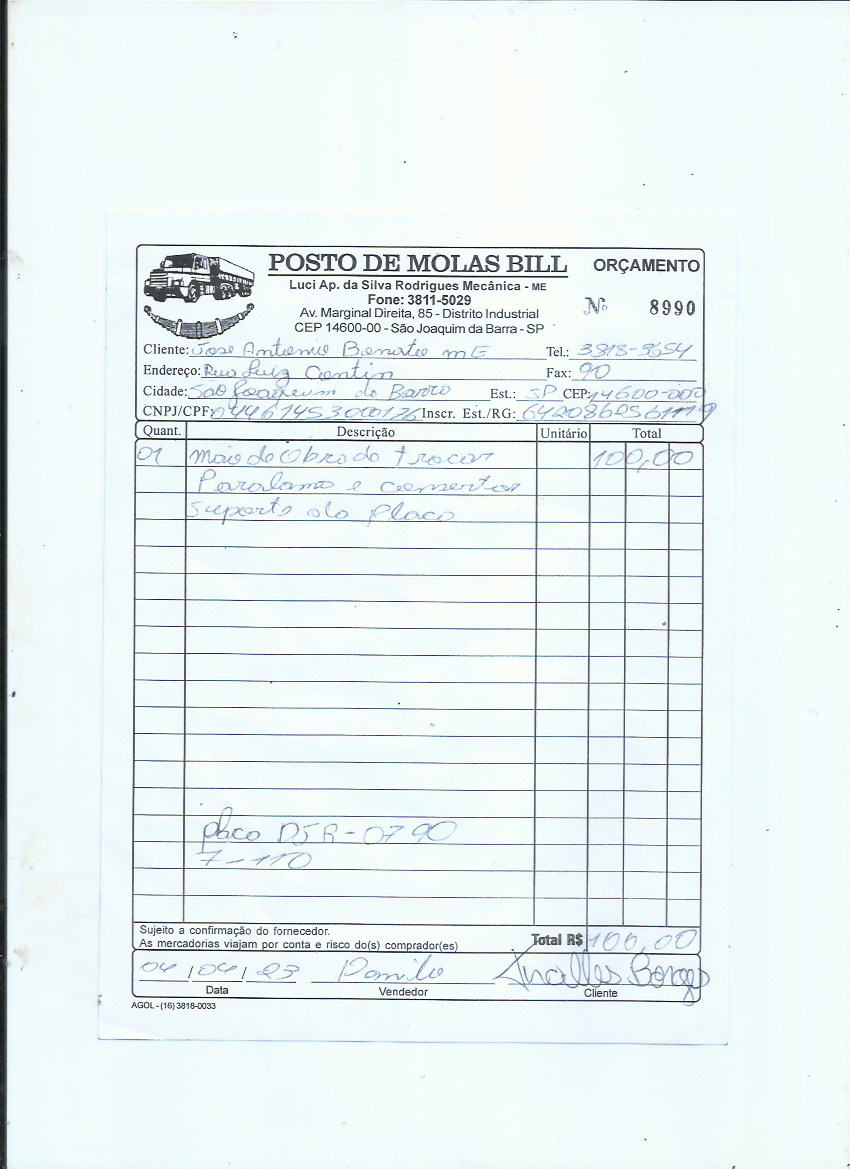 POSTO DE MOLAS BILL ORÇAMENTO
Luci Ap. da Silva Rodrigues Mecânica - ME
Fone: 3811-5029
Av. Marginal Direita, 85 - Distrito Industrial
CEP 14600-00 - São Joaquim da Barra - SP
Nº 8990
Cliente: Jose Antonio mE Tel.: 3818-3654
Endereço: Rua Luiz Contin Fax: 90
Cidade: São Joaquim da Barra Est.: SP CEP: 14600-000
CNPJ/CPF: Inscr. Est./RG:
Quant. Descrição Unitário Total
01 mão de Obra do trocar 100,00
Paralama e consertar
suporte da Placa
placa DJR-0790
7-110
Sujeito a confirmação do fornecedor.
As mercadorias viajam por conta e risco do(s) comprador(es)
Total R$ 100,00
04/04/23 Borges
Data Vendedor Cliente
AGOL - (16) 3818-0033